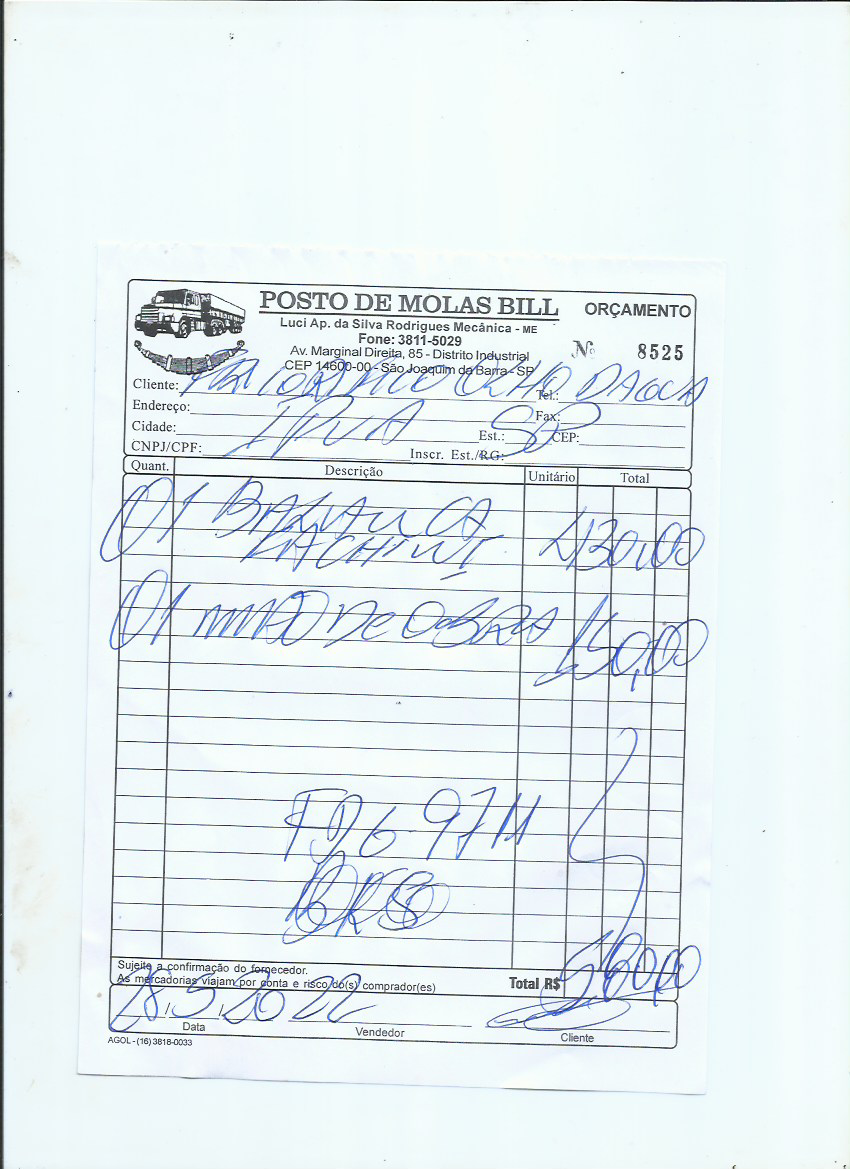 POSTO DE MOLAS BILL
ORÇAMENTO
Luci Ap. da Silva Rodrigues Mecânica - ME
Fone: 3811-5029
Av. Marginal Direita, 85 - Distrito Industrial
Nº 8525
CEP 14600-00 - São Joaquim da Barra - SP
Cliente: OLHO DAGUA Tel.:
Endereço: Fax:
Cidade: IPUA Est.: SP CEP:
CNPJ/CPF: Inscr. Est./RG:
Quant. Descrição Unitário Total
01 430,00
01 MÃO De OBRA 150,00
Sujeite a confirmação do fornecedor.
As mercadorias viajam por conta e risco do(s) comprador(es)
Total R$ 580,00
28/5/2022
Data Vendedor Cliente
AGOL - (16) 3818-0033